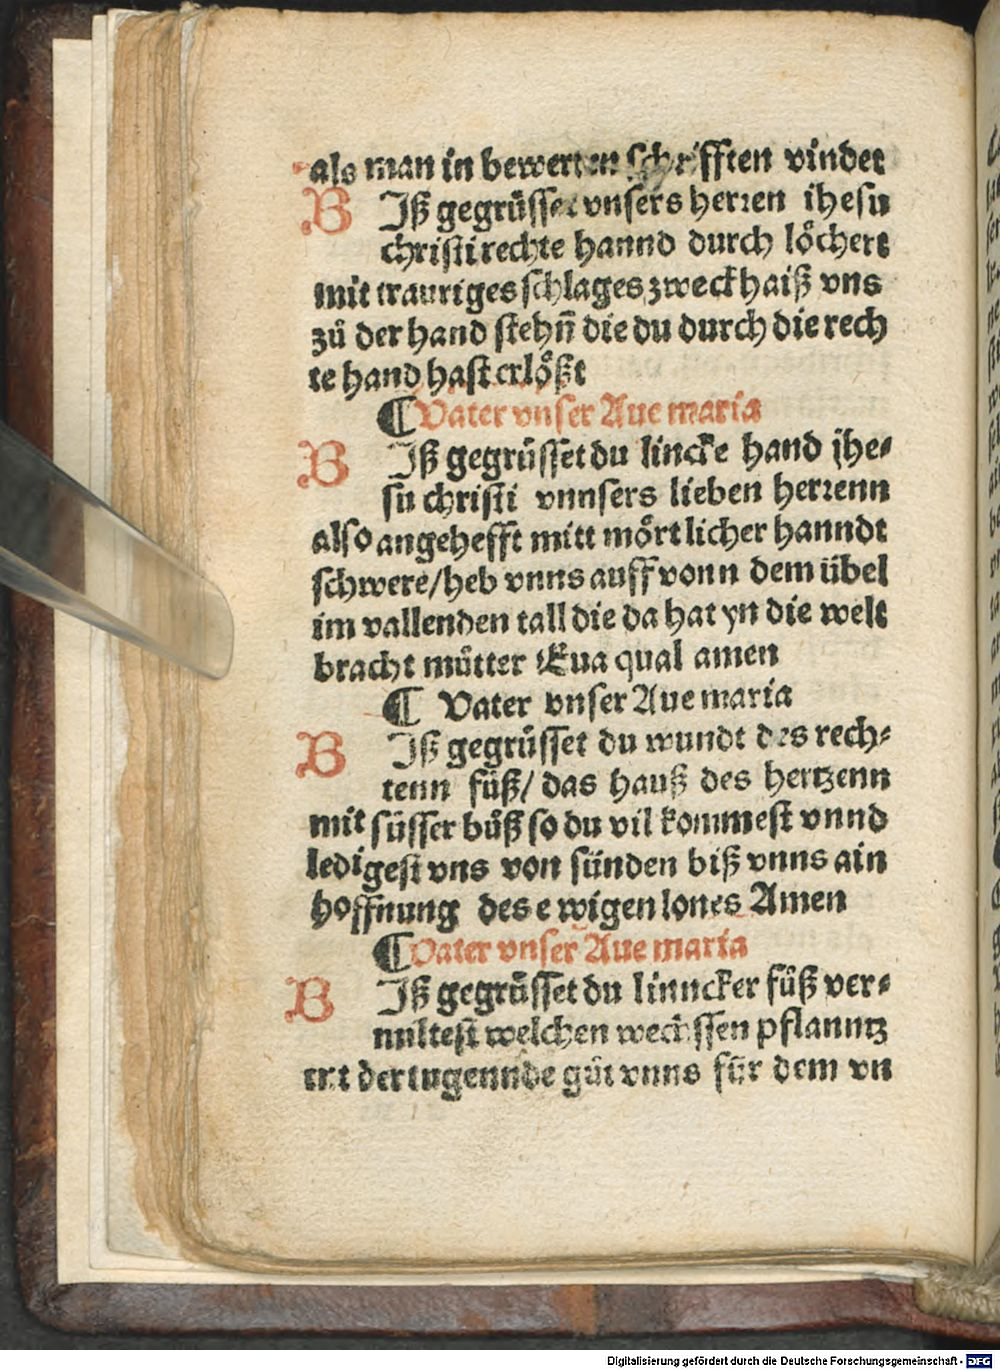 als man in bewerten schrifften vindet
BIß gegrüsset vnsers herren ihesu
christi rechte hannd durch löchert
mit trauriges schlages zweck haiß vns
zů der hand stehn̄ die du durch die rech
te hand hast erlößt
¶Vater vnser Aue maria
BIß gegrüsset du lincke hand jhe⸗
su christi vnnsers lieben herrenn
also angehefft mitt mörtlicher hanndt
schwere/heb vnns auff vonn dem übel
im vallenden tall die da hat yn die welt
bracht můtter Eua qual amen
¶ Vater vnser Aue maria
BIß gegrüsset du wundt des rech⸗
tenn fůß/ das hauß des hertzenn
mit süsser bůß so du vil kommest vnnd
ledigest vns von sünden biß vnns ain
hoffnung des ewigen lones Amen
¶Vater vnser Aue maria
BIß gegrüsset du linncker fůß ver⸗
nultest welchen wechssen pflanntz
ert der tugennde gůt vnns für dem vn
Digitalisierung gefördert durch die Deutsche Forschungsgemeinschaft - DFG